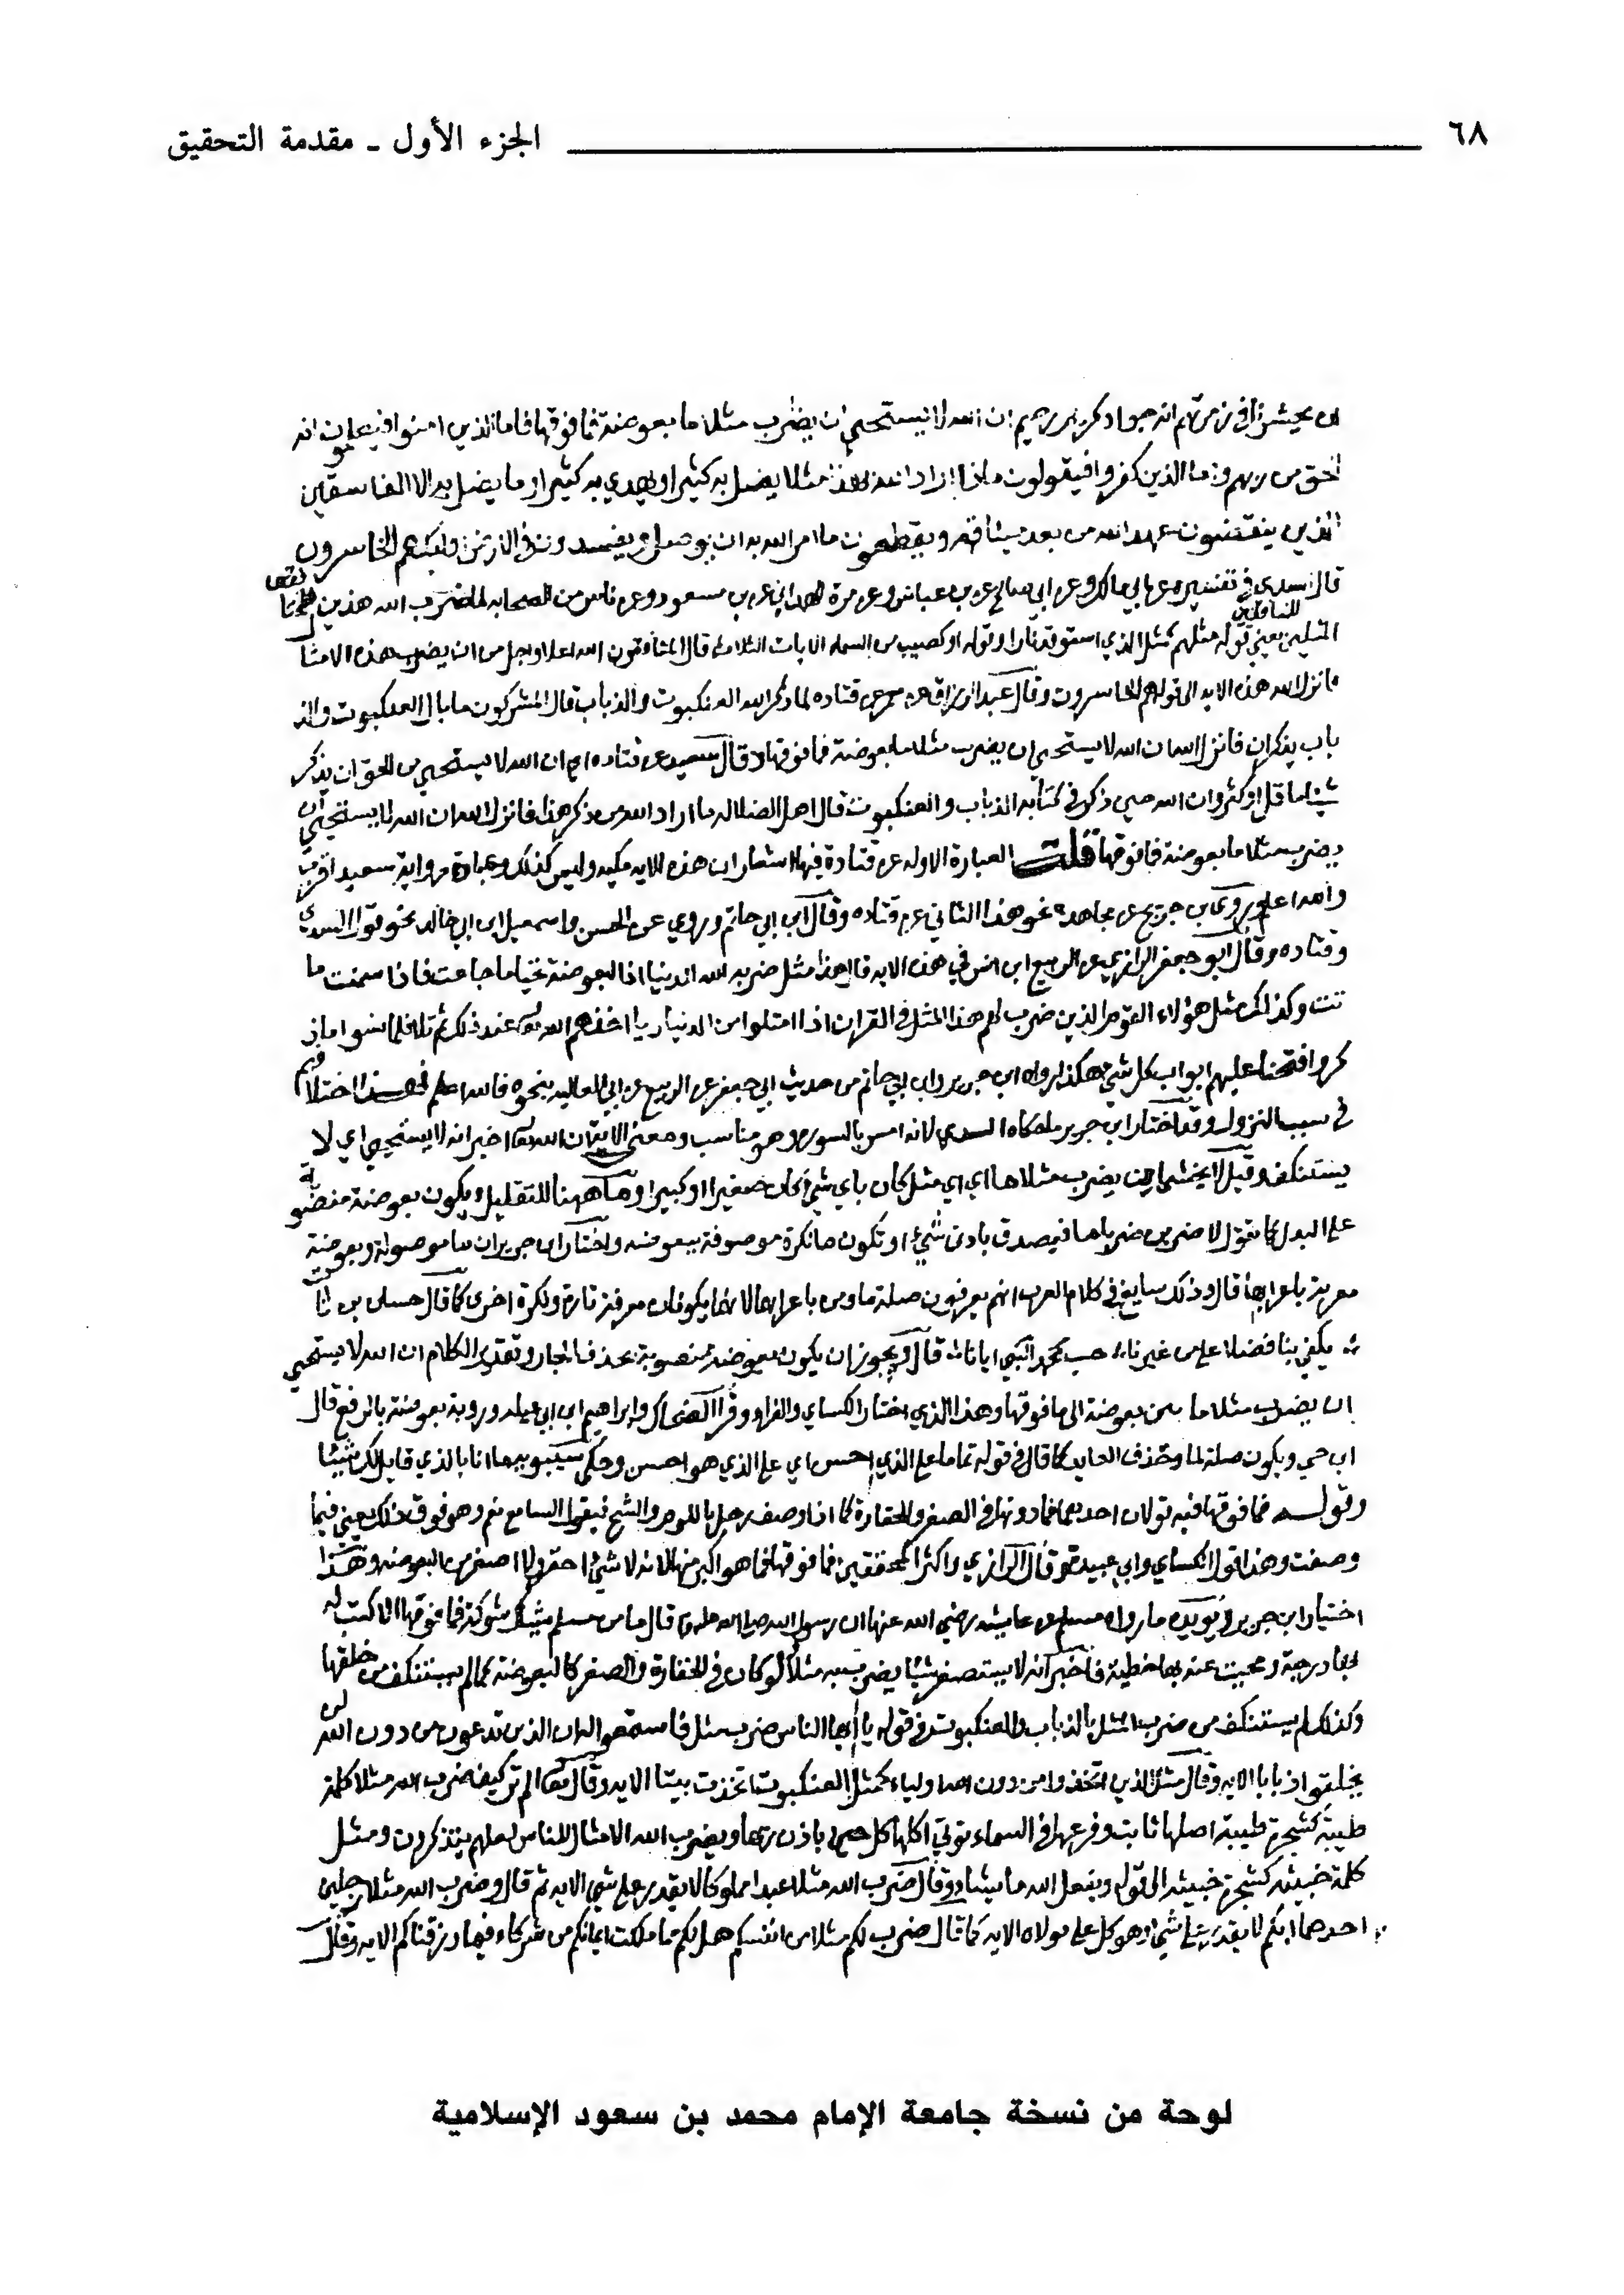 ٦٨ الجزء الأول ـ مقدمة التحقيق
ان يحشرنا في زمرتهم انه جواد كريم رحيم ان الله لا يستحيي ان يضرب مثلا ما بعوضة فما فوقها فاما الذين امنوا فيعلمون انه
الحق من ربهم واما الذين كفروا فيقولون ماذا اراد الله بهذا مثلا يضل به كثيرا ويهدي به كثيرا وما يضل به الا الفاسقين
الذين ينقضون عهد الله من بعد ميثاقه ويقطعون ما امر الله به ان يوصل ويفسدون في الارض اوليك هم الخاسرون
قال السدي في تفسيره عن ابي مالك وعن ابي صالح عن بن عباس وعن مرة الهمداني عن بن مسعود وعن ناس من الصحابه لما ضرب الله هذين
للمنافقين
المثلين يعني قوله مثلهم كمثل الذي استوقد نارا وقوله او كصيب من السماء الايات الثلاث قال المنافقون الله اعلا واجل من ان يضرب هذه الامثا
فانزل الله هذه الايه الى قوله هم الخاسرون وقال عبد الرزاق عن معمر عن قتاده لما ذكر الله العنكبوت والذباب قال المشركون ما بال العنكبوت والذ
باب يذكران فانزل الله ان الله لا يستحيي ان يضرب مثلا ما بعوضة فما فوقها وقال سعيد عن قتاده اي ان الله لا يستحيي من الحق ان يذكر
شيئا ما قل او كثر وان الله حين ذكر في كتابه الذباب والعنكبوت قال اهل الضلاله ما اراد الله من ذكر هذا فانزل الله ان الله لا يستحيي ان
يضرب مثلا ما بعوضة فما فوقها قلت العبارة الاوله عن قتادة فيها اشعار ان هذه الايه مكيه وليس كذلك وعبارة رواية سعيد اقرب
والله اعلم وروى بن جريج عن مجاهد نحو هذا الثاني عن قتاده وقال ابن ابي حاتم وروي عن الحسن واسمعيل ابن ابي خالد نحو قول السدي
وقتاده وقال ابو جعفر الرازي عن الربيع ابن انس في هذه الايه قال هذا مثل ضربه الله للدنيا ان البعوضة تحيا ما جاعت فاذا سمنت ما
تت وكذلك مثل هؤلاء القوم الذين ضرب لهم هذا المثل في القران اذا امتلوا من الدنيا ريا اخذهم الله عند ذلك ثم تلا فلما نسوا ما ذ
كروا به فتحنا عليهم ابواب كل شيء هكذا رواه ابن جرير وابن ابي حاتم من حديث ابي جعفر عن الربيع عن ابي العاليه بنحوه فالله اعلم فهذا اختلافهم
في سبب النزول وقد اختار ابن جرير ما حكاه السدي لانه امس بالسورة وهو مناسب ومعنى الايه ان الله اخبر انه لا يستحيي اي لا
يستنكف وقيل لا يخشى ان يضرب مثلا ما اي اي مثل كان باي شيء كان صغيرا او كبيرا وما ههنا للتقليل ويكون بعوضة منصوبة
على البدل كما تقول لاضربن ضربا ما فيصدق بادنى شيء او تكون ما نكرة موصوفة ببعوضه واختار ابن جرير ان ما موصولة وبعوضة
معربة باعرابها قال وذلك سايغ في كلام العرب انهم يعربون صلة ما ومن باعرابهما لانهما يكونان معرفة تارة ونكرة اخرى كما قال حسان بن ثابت
يكفي بنا فضلا على من غيرنا حب محمد النبي ايانا قال ويجوز ان يكون بعوضة منصوبة بحذف الجار وتقدير الكلام ان الله لا يستحيي
ان يضرب مثلا ما بين بعوضة الى ما فوقها وهذا الذي اختاره الكساي والفراء وقرا الضحاك وابراهيم ابن ابي عبله وروبة بعوضة بالرفع قال
ابن جني ويكون صلة لما وحذف العايد كما قال في قوله تماما على الذي احسن اي على الذي هو احسن وحكى سيبويه ما انا بالذي قايل لك شيئا
وقوله فما فوقها فيه قولان احدهما فما دونها في الصغر والحقارة كما اذا وصف رجل باللوم والشح فيقول السامع نعم وهو فوق ذلك يعني فيما
وصفت وهذا قول الكساي وابي عبيد قال الرازي واكثر المحققين فما فوقها فما هو اكبر منها لانه لا شيء احقر ولا اصغر من البعوضه وهذا
اختيار ابن جرير ويويده ما رواه مسلم عن عايشه رضي الله عنها ان رسول الله صلى الله عليه وسلم قال ما من مسلم يشاك شوكة فما فوقها الا كتب له
بها درجة ومحيت عنه بها خطية فاخبر انه لا يستصغر شيئا يضرب به مثلا ولو كان في الحقارة والصغر كالبعوضة كما لم يستنكف من خلقها
وكذلك لم يستنكف من ضرب المثل بالذباب والعنكبوت في قوله يا ايها الناس ضرب مثل فاستمعوا له ان الذين تدعون من دون الله لن
يخلقوا ذبابا الايه وقال مثل الذين اتخذوا من دون الله اولياء كمثل العنكبوت اتخذت بيتا الايه وقال تعالى الم تر كيف ضرب الله مثلا كلمة
طيبة كشجرة طيبة اصلها ثابت وفرعها في السماء توتي اكلها كل حين باذن ربها ويضرب الله الامثال للناس لعلهم يتذكرون ومثل
كلمة خبيثه كشجرة خبيثه الى قوله ويفعل الله ما يشاء وقال ضرب الله مثلا عبدا مملوكا لا يقدر على شيء الايه ثم قال وضرب الله مثلا رجلين
احدهما ابكم لا يقدر على شيء وهو كل على مولاه الايه كما قال ضرب لكم مثلا من انفسكم هل لكم مما ملكت ايمانكم من شركاء فيما رزقناكم الايه وقال
لوحة من نسخة جامعة الإمام محمد بن سعود الإسلامية